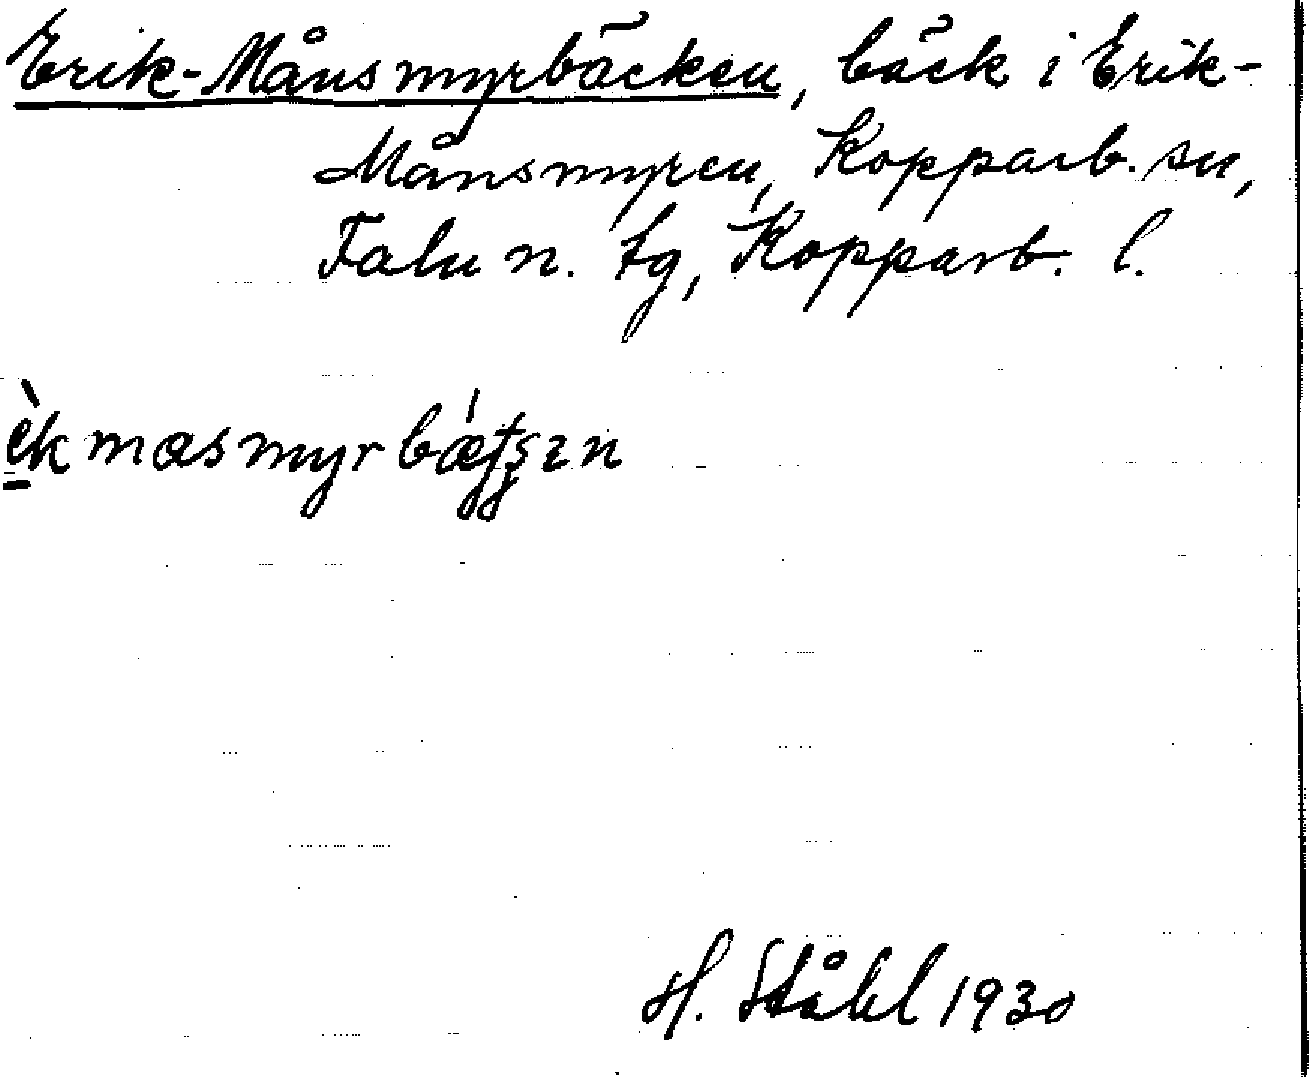 Erik-Månsmyrbäcken, bäck i Erik-
Månsmyren, Kopparb. sn,
Falu n. tg, Kopparb. l.
H. Ståhl 1930